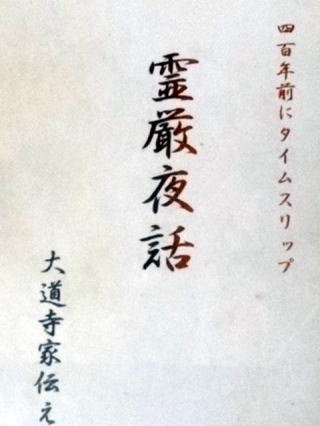 四百年前にタイムスリップ
霊厳夜話
大道寺家伝え